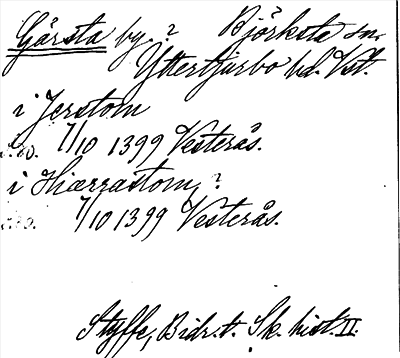 Gärsta by. ? Björksta sn.
Yttertjurbo hd. Vstm.
i Jerstom
s. 80. 7/10 1399 Vesterås.
i Hiærrastom ?
7/10 1399 Vesterås.
Styffe, Bidr. t. Sk. hist. II.